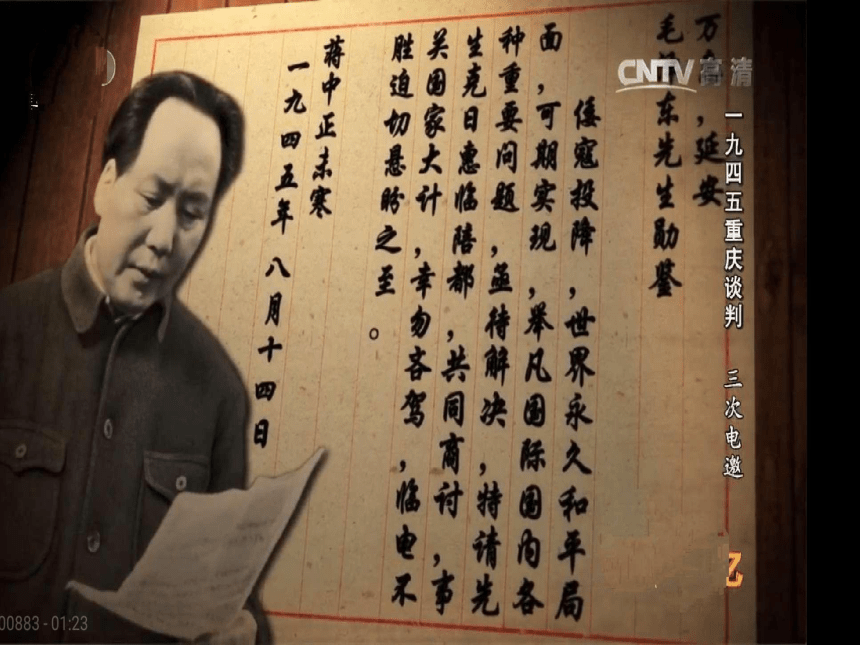 CNTV高清
一九四五重庆谈判 三次电邀
万，延安
毛泽东先生勋鉴
倭寇投降，世界永久和平局
面，可期实现，举凡国际国内各
种重要问题，亟待解决，特请先
生克日惠临陪都，共同商讨，事
关国家大计，幸勿吝驾，临电不
胜迫切悬盼之至。
蒋中正未寒
一九四五年 八月十四日
忆
00883 - 01:23